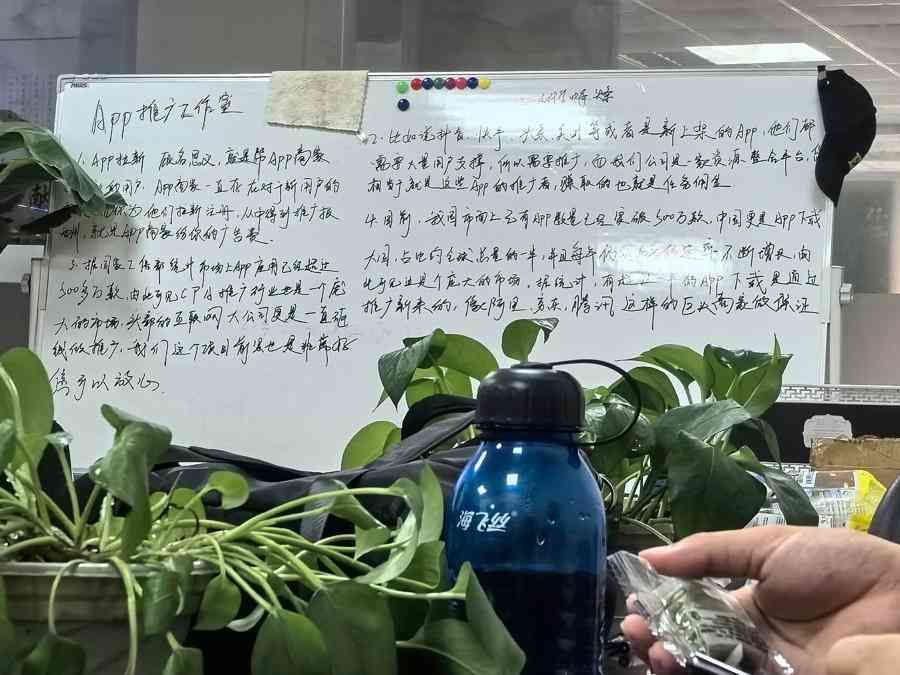 App推广工作室
1. App拉新 顾名思义,就是帮App商家
用户. App商家一直在应对于新用户的
为他们拉新注册,从中得到推广报
酬,就是App商家给你的广告费.
3. 据国家工信部统计市场上App应用已经超过
300多万款,由此可见CPA推广行业也是一个庞
大的市场,头部的互联网大公司更是一直砸
钱做推广,我们这个项目前景也是非常好
您可以放心.
2. 比如说抖音. 快手 等或者是新上架的App,他们都
需要大量用户支撑,所以需要推广,而我们公司是一家资源整合平台,
相当于就是这些App的推广者,赚取的也就是任务佣金
4. 目前,我国市面上已有App数量已经突破300万款,中国更是App下载
大国,占比约全球总量的一半,并且每年 不断增长,向
此可见这是个庞大的市场. 据统计,有 的App下载是通过
推广新来的,像阿里,京东,腾讯这样的巨头商家做保证